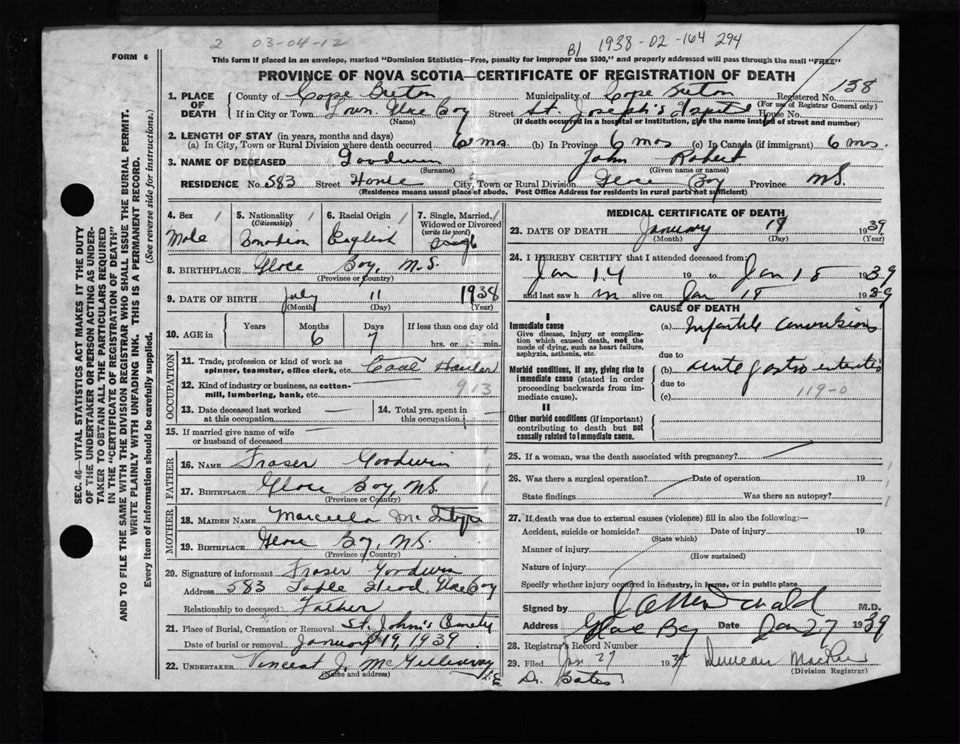 2 03-04-12
B) 1938-02-164 294
FORM 6
This form if placed in an envelope, marked "Dominion Statistics—Free, penalty for improper use $300," and properly addressed will pass through the mail "FREE"
PROVINCE OF NOVA SCOTIA—CERTIFICATE OF REGISTRATION OF DEATH
SEC. 46—VITAL STATISTICS ACT MAKES IT THE DUTY
OF THE UNDERTAKER OR PERSON ACTING AS UNDER-
TAKER TO OBTAIN ALL THE PARTICULARS REQUIRED
IN THE "CERTIFICATE OF REGISTRATION OF DEATH"
AND TO FILE THE SAME WITH THE DIVISION REGISTRAR WHO SHALL ISSUE THE BURIAL PERMIT.
WRITE PLAINLY WITH UNFADING INK. THIS IS A PERMANENT RECORD.
Every item of information should be carefully supplied. (See reverse side for instructions.)
1. PLACE OF DEATH
County of Cape Breton Municipality of Cape Breton Registered No. 158
(For use of Registrar General only)
If in City or Town Town Glace Bay Street St. Joseph's Hospital House No.
(Name) (If death occurred in a hospital or institution, give the name instead of street and number)
2. LENGTH OF STAY (in years, months and days)
(a) In City, Town or Rural Division where death occurred 6 ms. (b) In Province 6 mos (c) In Canada (if immigrant) 6 ms.
3. NAME OF DECEASED Goodwin John Robert
(Surname) (Given name or names)
RESIDENCE No. 583 Street City, Town or Rural Division Glace Bay Province N.S.
(Residence means usual place of abode. Post Office Address for residents in rural parts not sufficient)
4. Sex 5. Nationality (Citizenship) 6. Racial Origin 7. Single, Married, Widowed or Divorced (write the word)
Male Canadian English Single
8. BIRTHPLACE Glace Bay, N.S.
(Province or Country)
9. DATE OF BIRTH July 11 1938
(Month) (Day) (Year)
10. AGE in Years Months Days If less than one day old
6 7 hrs. or min.
OCCUPATION
11. Trade, profession or kind of work as spinner, teamster, office clerk, etc. Coal
12. Kind of industry or business, as cotton-mill, lumbering, bank, etc. 913
13. Date deceased last worked at this occupation
14. Total yrs. spent in this occupation
15. If married give name of wife or husband of deceased
FATHER
16. NAME Fraser Goodwin
17. BIRTHPLACE Glace Bay, N.S.
(Province or Country)
MOTHER
18. MAIDEN NAME Marcella McIntyre
19. BIRTHPLACE Glace Bay, N.S.
(Province or Country)
20. Signature of informant Fraser Goodwin
Address 583 Table Head, Glace Bay
Relationship to deceased Father
21. Place of Burial, Cremation or Removal St. John's
Date of burial or removal January 19, 1939
22. UNDERTAKER Vincent J. McGillivray
(Name and address)
MEDICAL CERTIFICATE OF DEATH
23. DATE OF DEATH January 18 1939
(Month) (Day) (Year)
24. I HEREBY CERTIFY that I attended deceased from
Jan 14 19 to Jan 18 1939
and last saw h im alive on Jan 18 1939
CAUSE OF DEATH
I
Immediate cause
Give disease, injury or complication which caused death, not the mode of dying, such as heart failure, asphyxia, asthenia, etc.
(a) Infantile convulsions
due to
Morbid conditions, if any, giving rise to immediate cause (stated in order proceeding backwards from immediate cause).
(b) acute gastro enteritis
due to 119-0
(c)
II
Other morbid conditions (if important) contributing to death but not causally related to immediate cause.
25. If a woman, was the death associated with pregnancy?
26. Was there a surgical operation? Date of operation 19
State findings Was there an autopsy?
27. If death was due to external causes (violence) fill in also the following:—
Accident, suicide or homicide? Date of injury 19
(State which)
Manner of injury
(How sustained)
Nature of injury
Specify whether injury occurred in industry, in home, or in public place
Signed by M.D.
Address Glace Bay Date Jan 27 1939
28. Registrar's Record Number
29. Filed Jan 27 1939 Duncan
(Division Registrar)
Dr. Bates